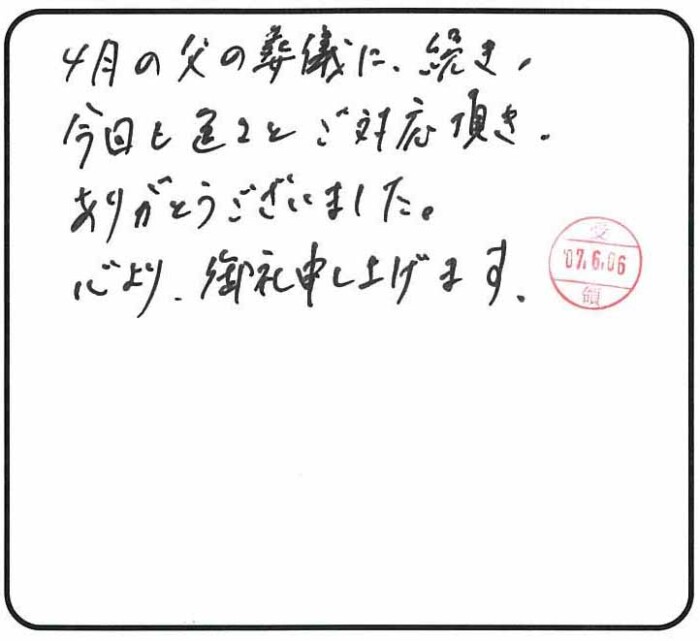 4月の父の葬儀に、続き、
今回も色々とご対応頂き、
ありがとうございました。
心より、御礼申し上げます。
受
'07.6.06
領